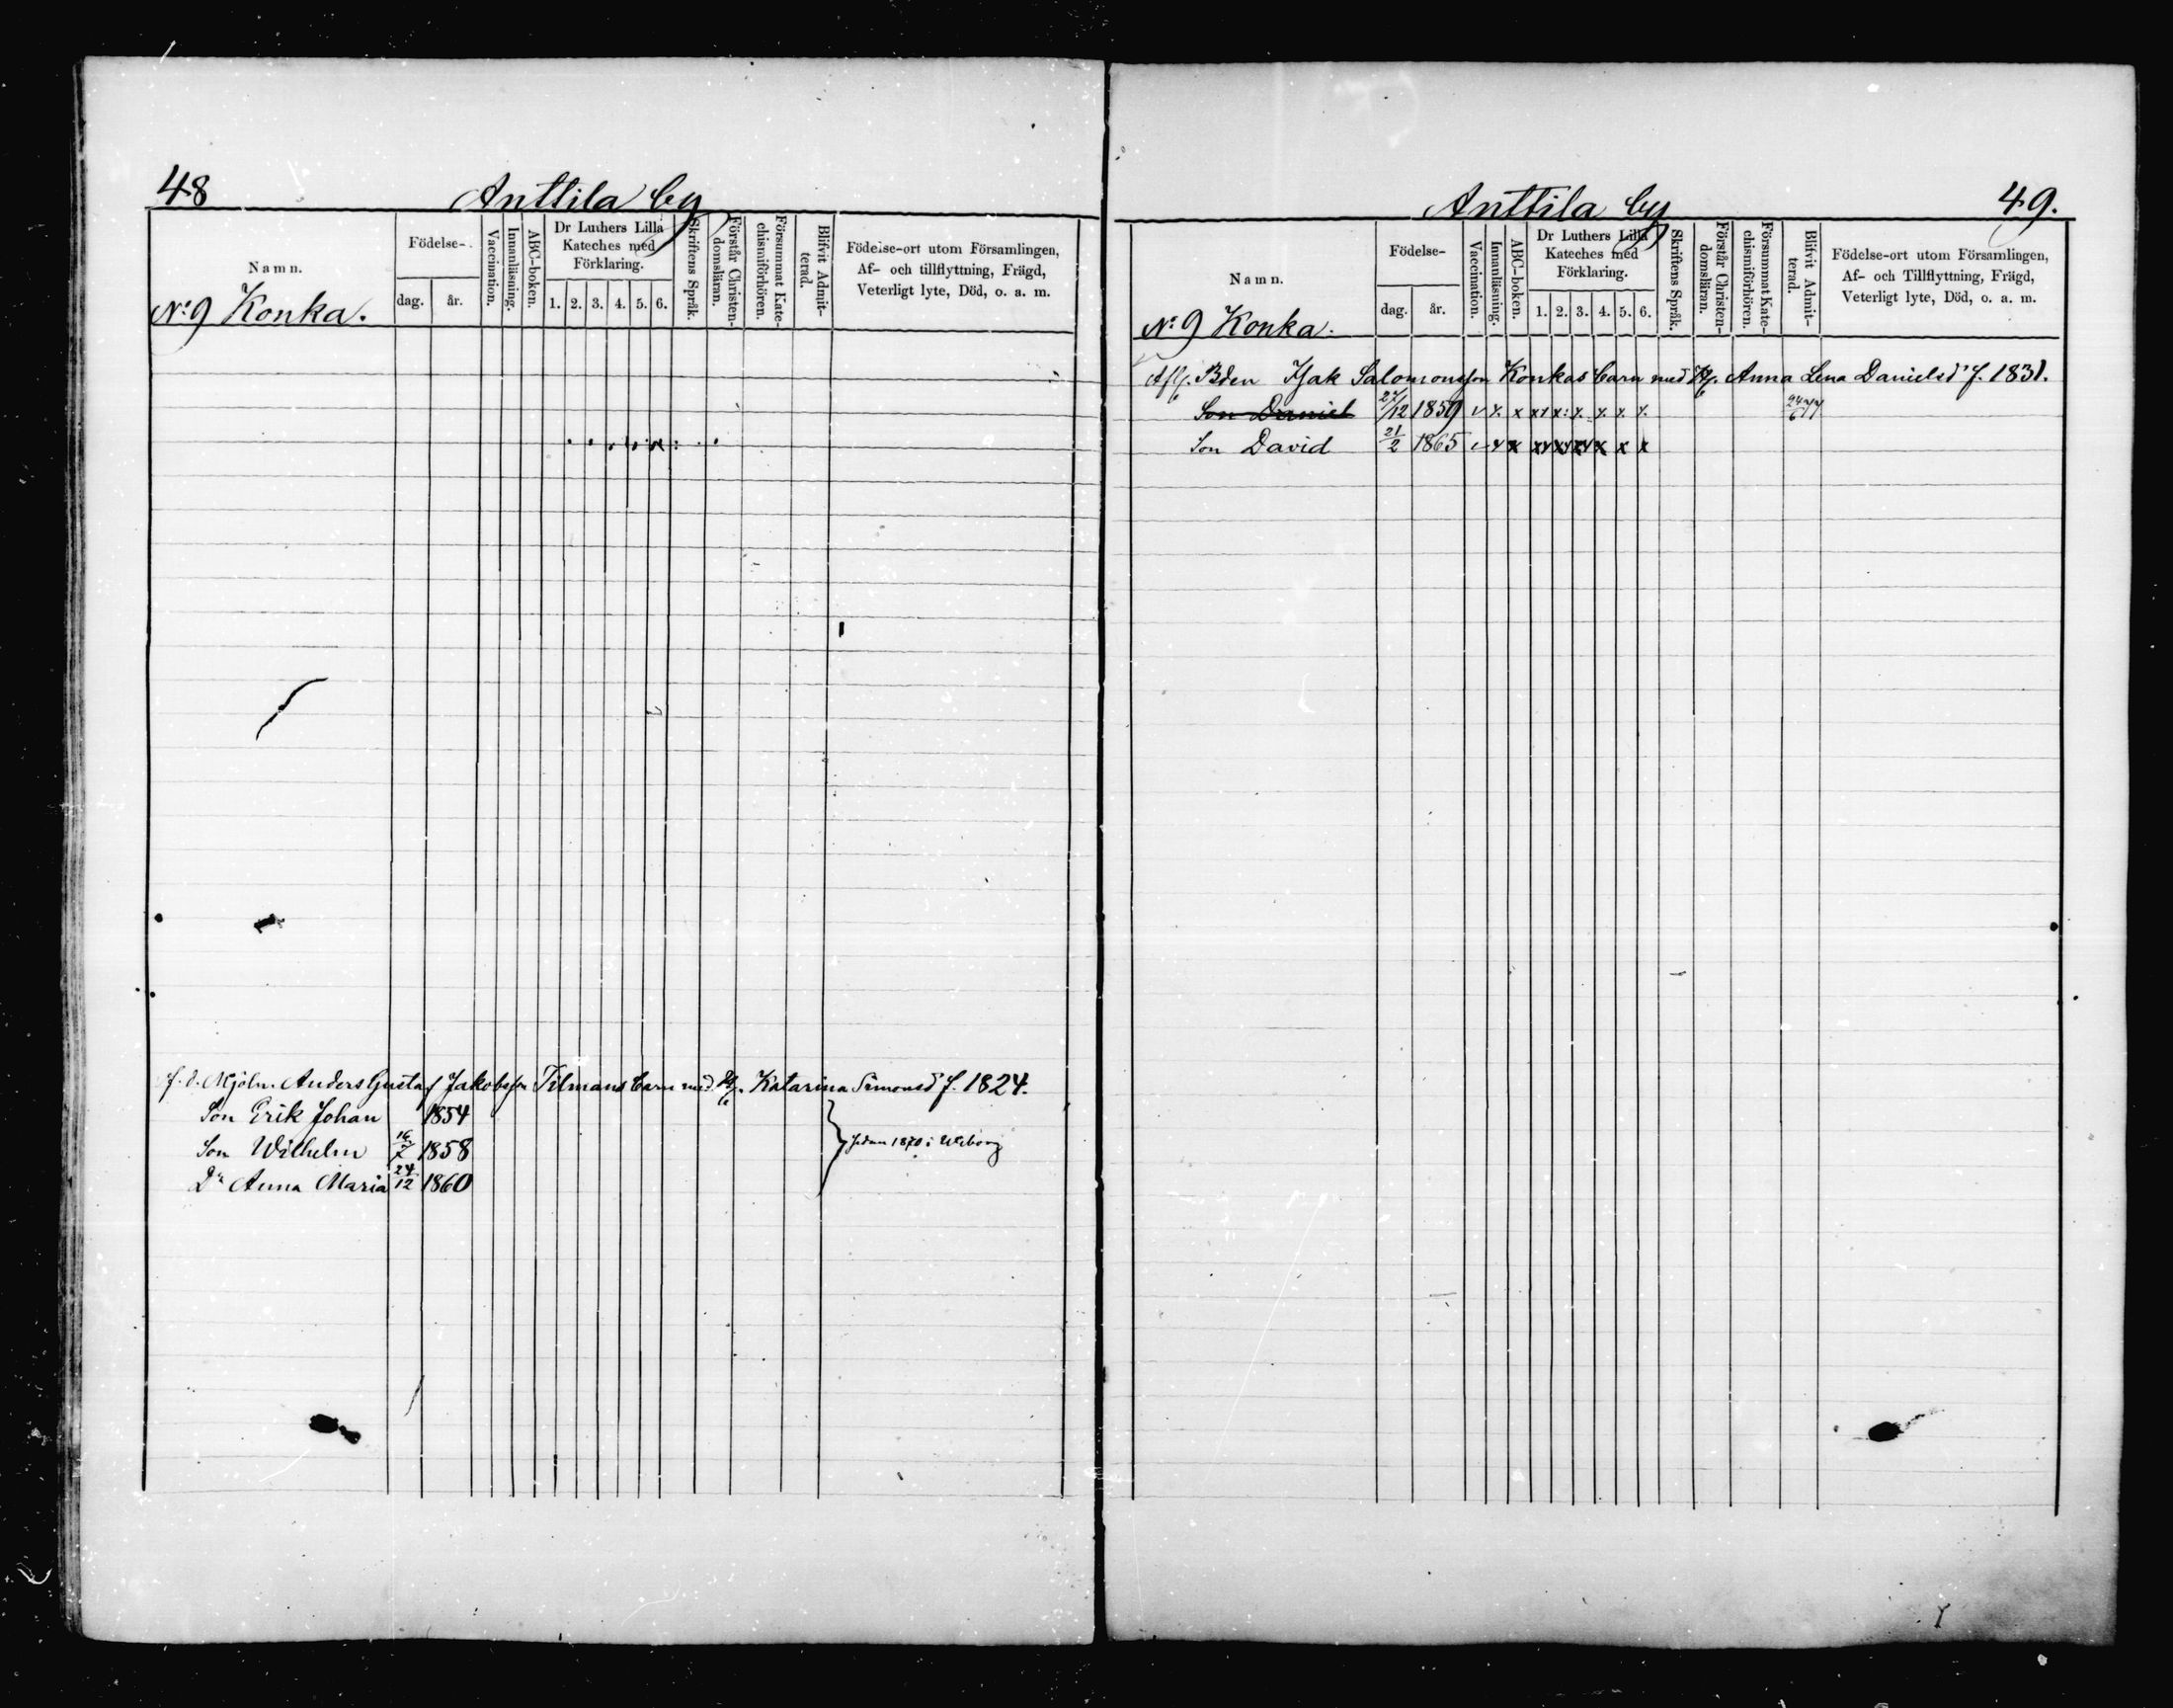 48
Anttila by
Namn.
Födelse-
dag. år.
Vaccination.
Innanläsning.
ABC-boken.
Dr Luthers Lilla
Kateches med
Förklaring.
1. 2. 3. 4. 5. 6.
Skriftens Språk.
Förstår Christen-
domsläran.
Försummat Kate-
chismiförhören.
Blifvit Admit-
terad.
Födelse-ort utom Församlingen,
Af- och tillflyttning, Frägd,
Veterligt lyte, Död, o. a. m.
No 9 Konka.
f. d. Mjöln. Anders Gustaf Jakobsson Tilmans barn med H. Katarina Simonsd f. 1824.
Son Erik Johan 1854
Son Wilhelm 16/7 1858
Dr Anna Maria 24/12 1860
sedan 1870 i Wiborg
Anttila by
49.
Namn.
Födelse-
dag. år.
Vaccination.
Innanläsning.
ABC-boken.
Dr Luthers Lilla
Kateches med
Förklaring.
1. 2. 3. 4. 5. 6.
Skriftens Språk.
Förstår Christen-
domsläran.
Försummat Kate-
chismiförhören.
Blifvit Admit-
terad.
Födelse-ort utom Församlingen,
Af- och Tillflyttning, Frägd,
Veterligt lyte, Död, o. a. m.
No 9 Konka.
Afl. Bden Isak Salomonsson Konkas barn med H. Anna Lena Danielsd' f. 1831.
Son Daniel 27/12 1859 v x x xx x: x x x x 24/6 77
Son David 21/2 1865 v x x xx xx xx x x x